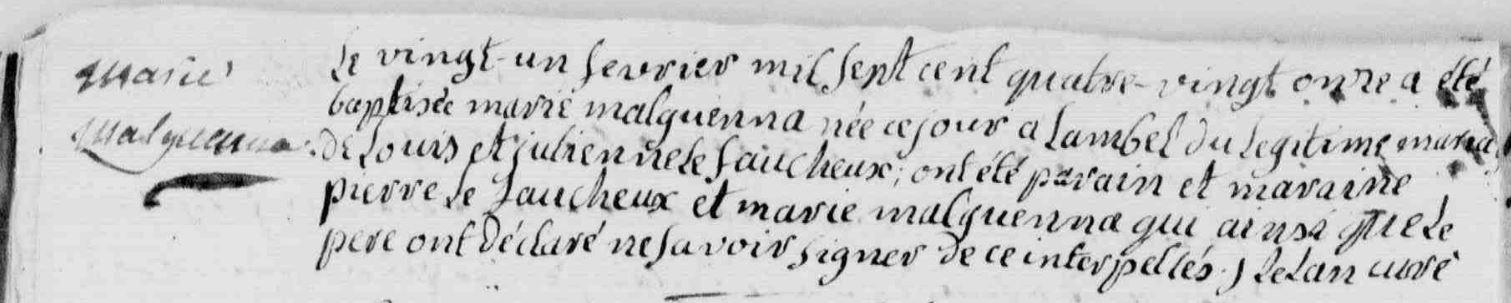 Marie
Malguenna
le vingt-un fevrier mil sept cent quatre-vingt onze a été
baptisée marie malguenna née ce jour a Lambel du legitime maria
de Louis et julienne le faucheux; ont été parain et maraine
pierre le faucheux et marie malguenna qui ainsi que le
pere ont déclaré ne savoir signer de ce interpellés. J curé